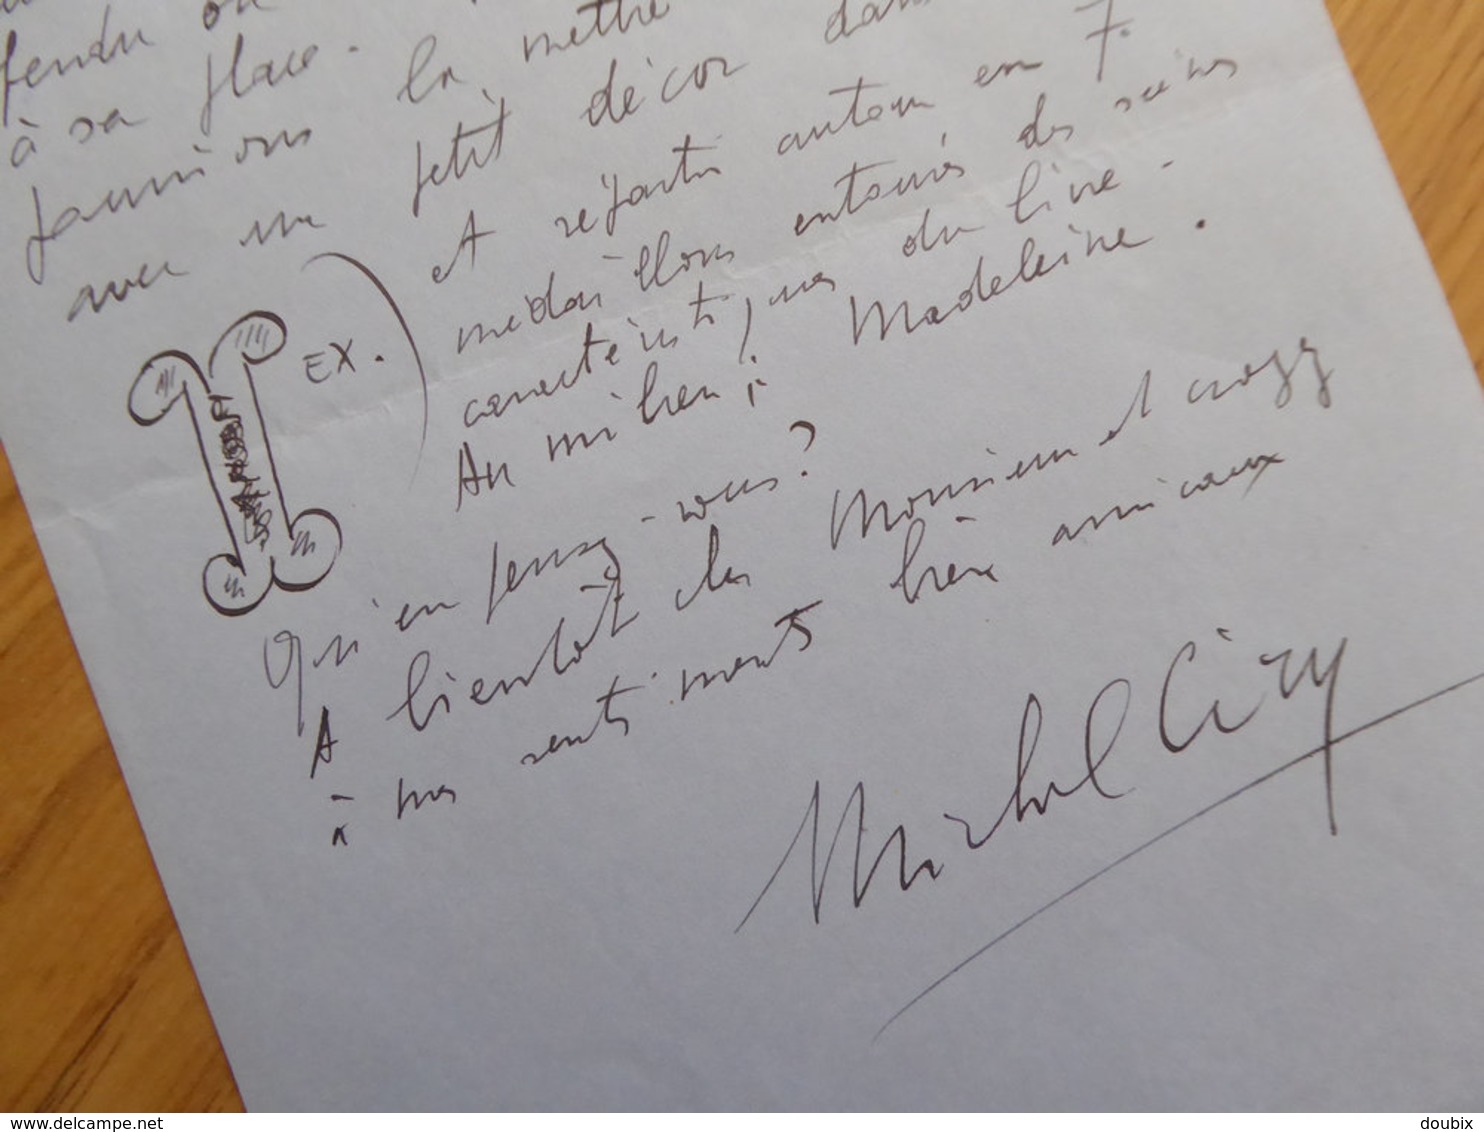 fendu ou
à sa place.
pourrions la mettre
avec un petit décor dans
EX.
et répartir autour en 7
médaillons entourés des scènes
caractéristiques du livre.
Au milieu : Madeleine.
Qu'en pensez-vous ?
A bientôt cher Monsieur et croyez
à mes sentiments bien amicaux
Michel Ciry
www.delcampe.net
doubix